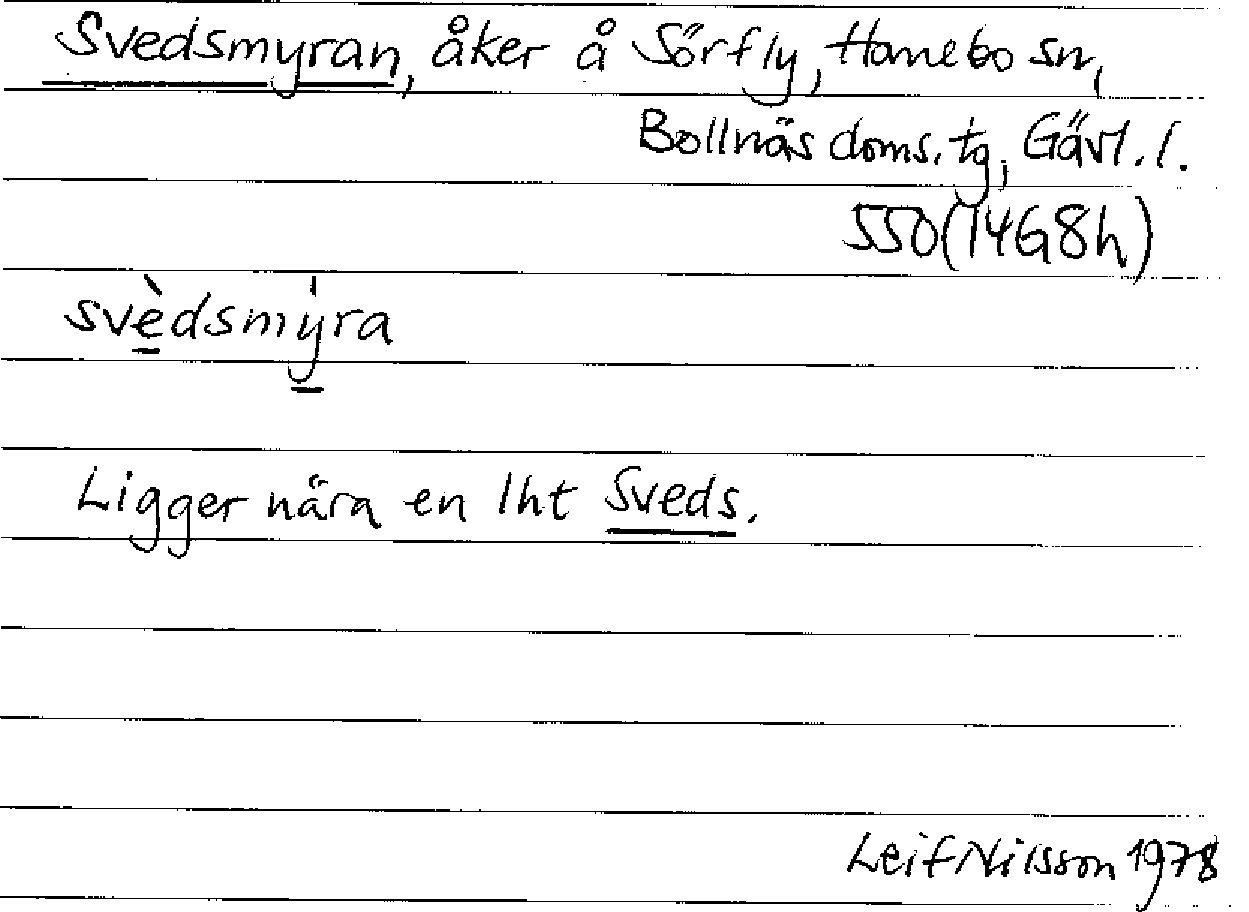 Svedsmyran, åker å Sörfly, Hanebo sn,
Bollnäs doms. tg, Gävl. l.
550 (14G8h)
svèdsmýra
Ligger nära en lht Sveds.
Leif Nilsson 1978